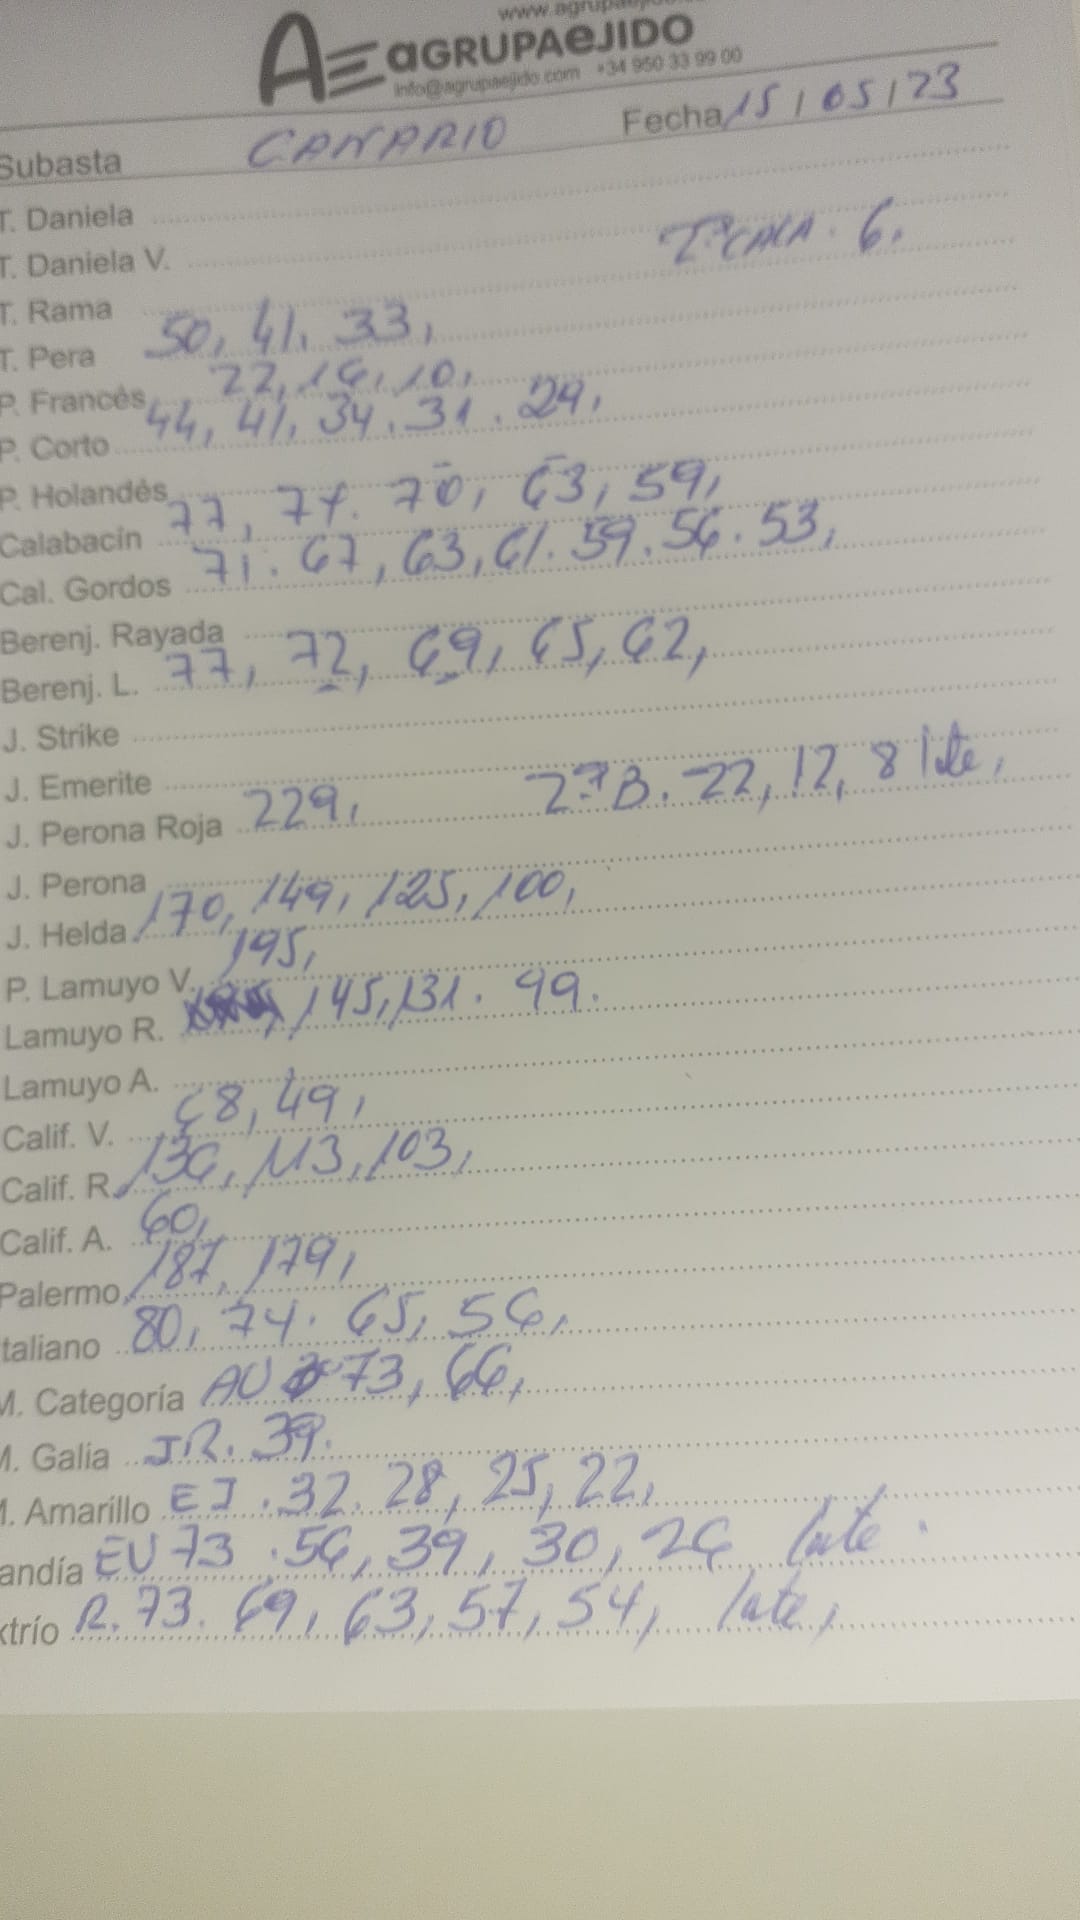 www.agrupaejido
AGRUPAEJIDO
info@agrupaejido.com +34 950 33 99 00
Subasta CANARIO Fecha 15/05/23
T. Daniela
T. Daniela V. CALA. 6,
T. Rama
T. Pera 50, 41, 33,
P. Francés 22, 16, 10,
P. Corto 44, 41, 34. 31. 29,
P. Holandés
Calabacin 77, 74. 70, 63, 59,
Cal. Gordos 71. 67, 63, 61. 59. 56. 53,
Berenj. Rayada
Berenj. L. 77, 72, 69, 65, 62,
J. Strike
J. Emerite
J. Perona Roja 229, 2ªB. 22, 12, 8 lote,
J. Perona
J. Helda 170, 149, 125, 100,
P. Lamuyo V. 195,
Lamuyo R. 145, 131. 99.
Lamuyo A.
Calif. V. 68, 49,
Calif. R. 136, 113, 103,
Calif. A. 60,
Palermo 187, 179,
taliano 80, 74. 65, 56,
M. Categoría AU 73, 66,
M. Galia JR. 39.
M. Amarillo EJ. 32. 28, 25, 22,
andía EU 73. 56, 39, 30, 26 lote.
xtrío R. 73. 69, 63, 57, 54, lote,